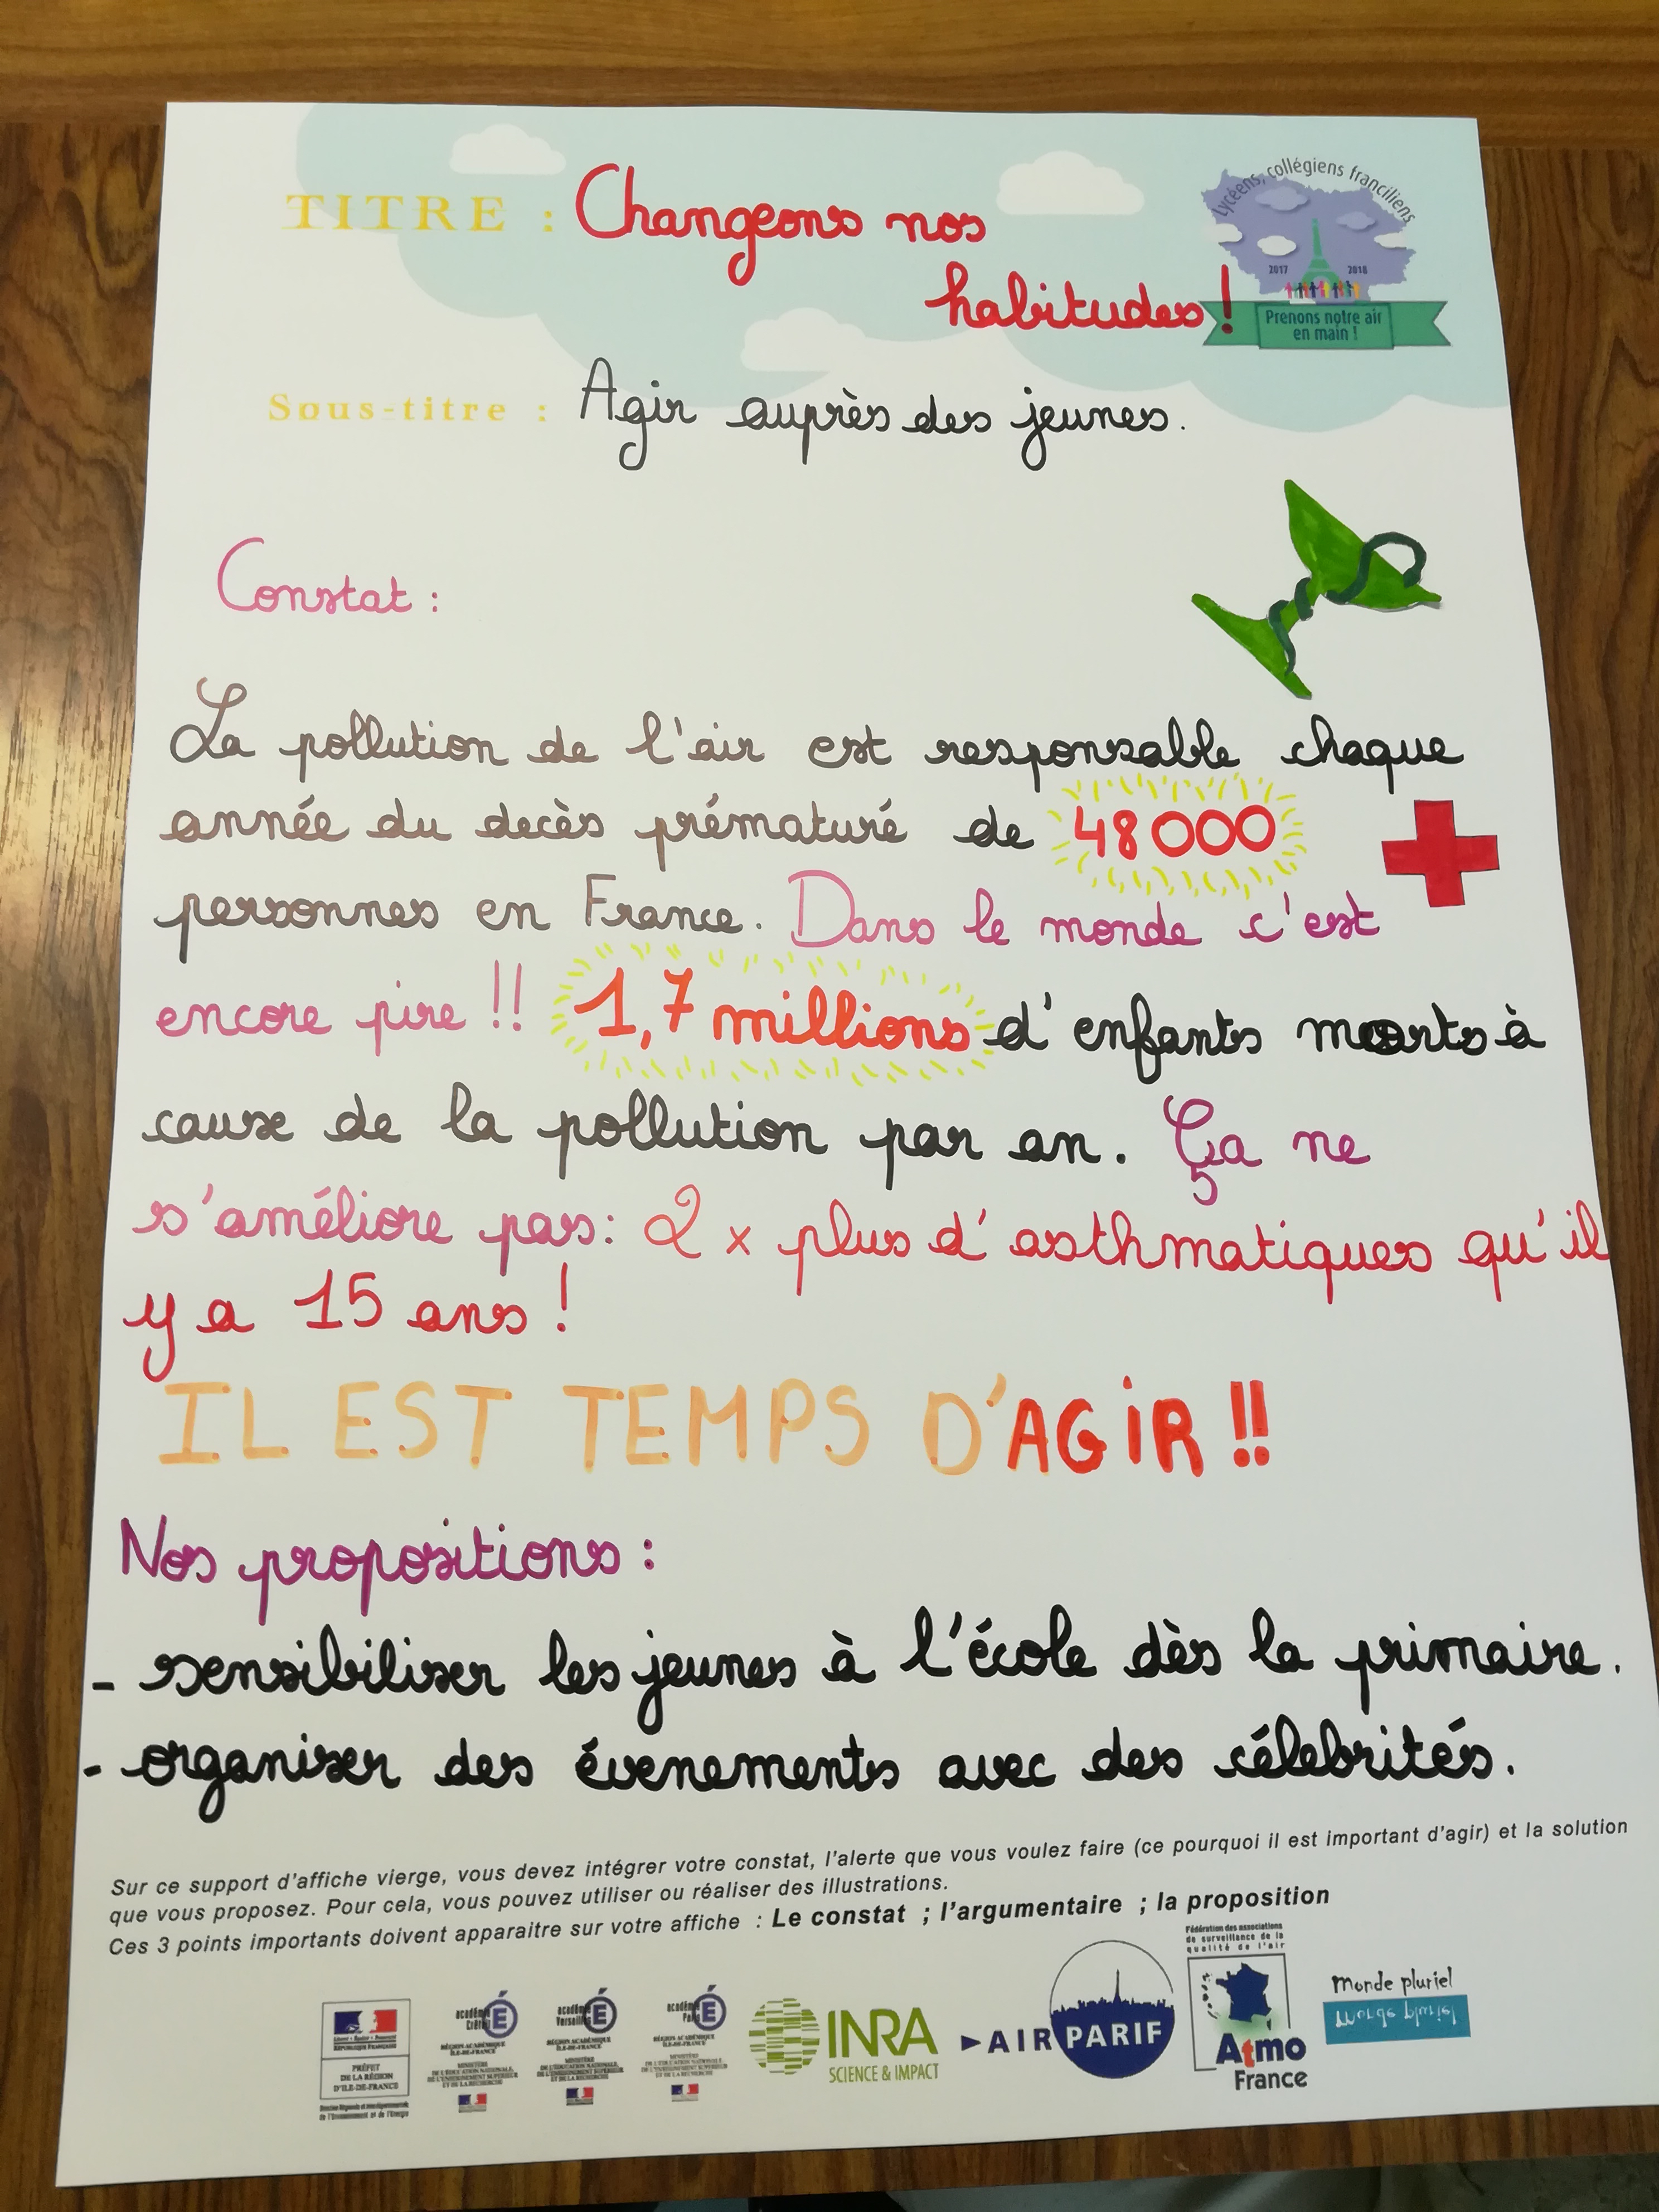 TITRE : Changeons nos
habitudes !
Lycéens, collégiens franciliens
2017 2018
Prenons notre air
en main !
Sous-titre : Agir auprès des jeunes.
Constat :
La pollution de l'air est responsable chaque
année du decès prématuré de 48000
personnes en France. Dans le monde c'est
encore pire !! 1,7 millions d'enfants morts à
cause de la pollution par an. Ça ne
s'améliore pas : 2 x plus d'asthmatiques qu'il
y a 15 ans !
IL EST TEMPS D'AGIR !!
Nos propositions :
- sensibiliser les jeunes à l'école dès la primaire.
- organiser des évenements avec des célebrités.
Sur ce support d'affiche vierge, vous devez intégrer votre constat, l'alerte que vous voulez faire (ce pourquoi il est important d'agir) et la solution
que vous proposez. Pour cela, vous pouvez utiliser ou réaliser des illustrations.
Ces 3 points importants doivent apparaitre sur votre affiche : Le constat ; l'argumentaire ; la proposition
RÉPUBLIQUE FRANÇAISE
PRÉFET
DE LA RÉGION
D'ILE-DE-FRANCE
académie
Créteil
RÉGION ACADÉMIQUE
ÎLE-DE-FRANCE
académie
Versailles
RÉGION ACADÉMIQUE
ÎLE-DE-FRANCE
académie
Paris
RÉGION ACADÉMIQUE
ÎLE-DE-FRANCE
INRA
SCIENCE & IMPACT
AIRPARIF
Fédération des associations
de surveillance de la
qualité de l'air
Atmo
France
monde pluriel
monde pluriel